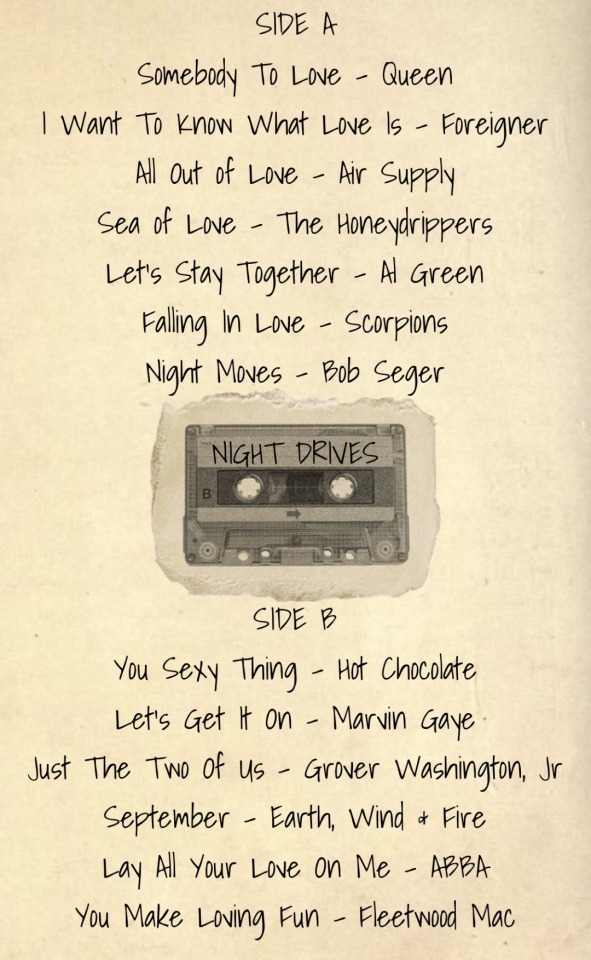 SIDE A
Somebody To Love - Queen
I Want To Know What Love Is - Foreigner
All Out of Love - Air Supply
Sea of Love - The Honeydrippers
Let's Stay Together - Al Green
Falling In Love - Scorpions
Night Moves - Bob Seger
NIGHT DRIVES
B
SIDE B
You Sexy Thing - Hot Chocolate
Let's Get It On - Marvin Gaye
Just The Two Of Us - Grover Washington, Jr
September - Earth, Wind & Fire
Lay All Your Love On Me - ABBA
You Make Loving Fun - Fleetwood Mac